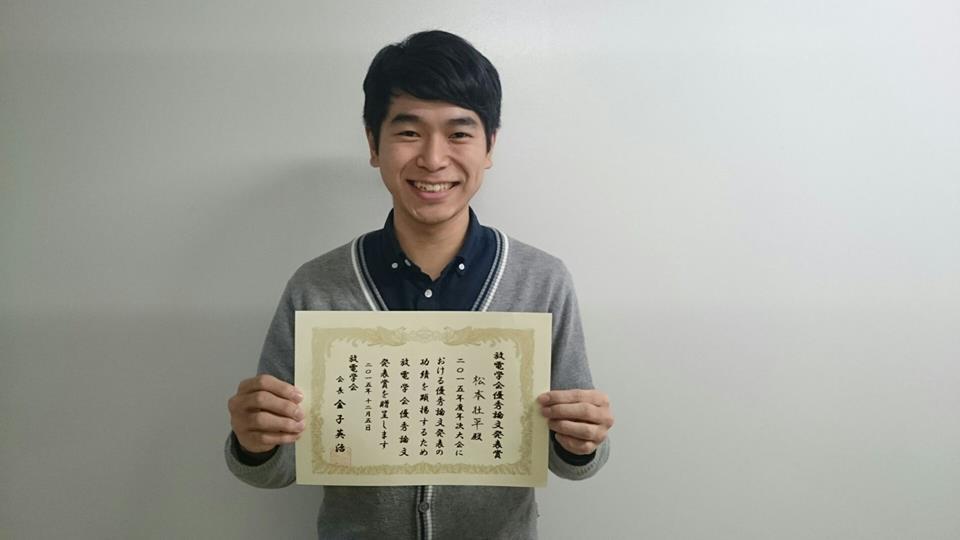 放電学会優秀論文発表賞
松本壮平殿
二〇一五年度年次大会に
おける優秀論文発表の
功績を顕揚するため
放電学会優秀論文
発表賞を贈呈します
二〇一五年十二月五日
放電学会
会長 金子英治